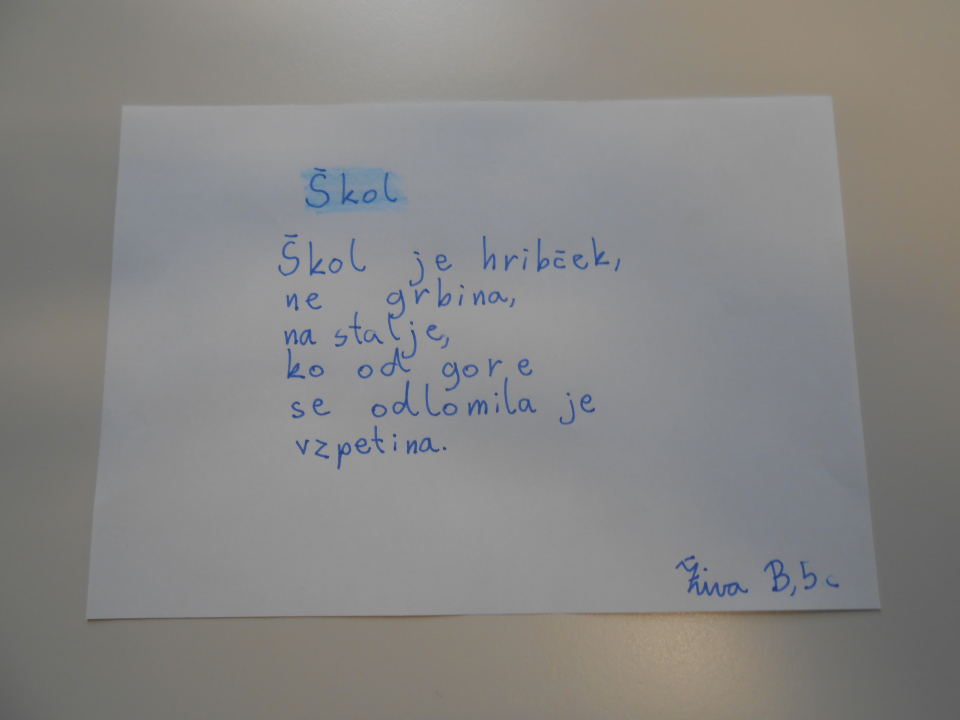 Škol
Škol je hribček,
ne grbina,
na stalje,
ko od gore
se odlomila je
vzpetina.
Živa B, 5c